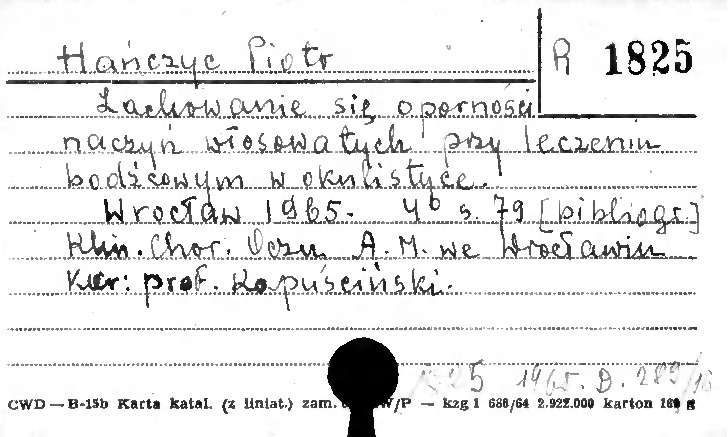 Hańczyc Piotr
R 1825
Zachowanie się oporności
naczyń włosowatych przy leczeniu
bodźcowym w okulistyce.
Wrocław 1965. 4b s. 79 [bibliogr.]
Klin. Chor. Oczu A. M. we Wrocławiu
Kier: prof. Kapuściński.
1965. D. 289/
CWD — B-15b Karta katal. (z liniat.) zam. W/P — kzg 1 688/64 2.922.000 karton g